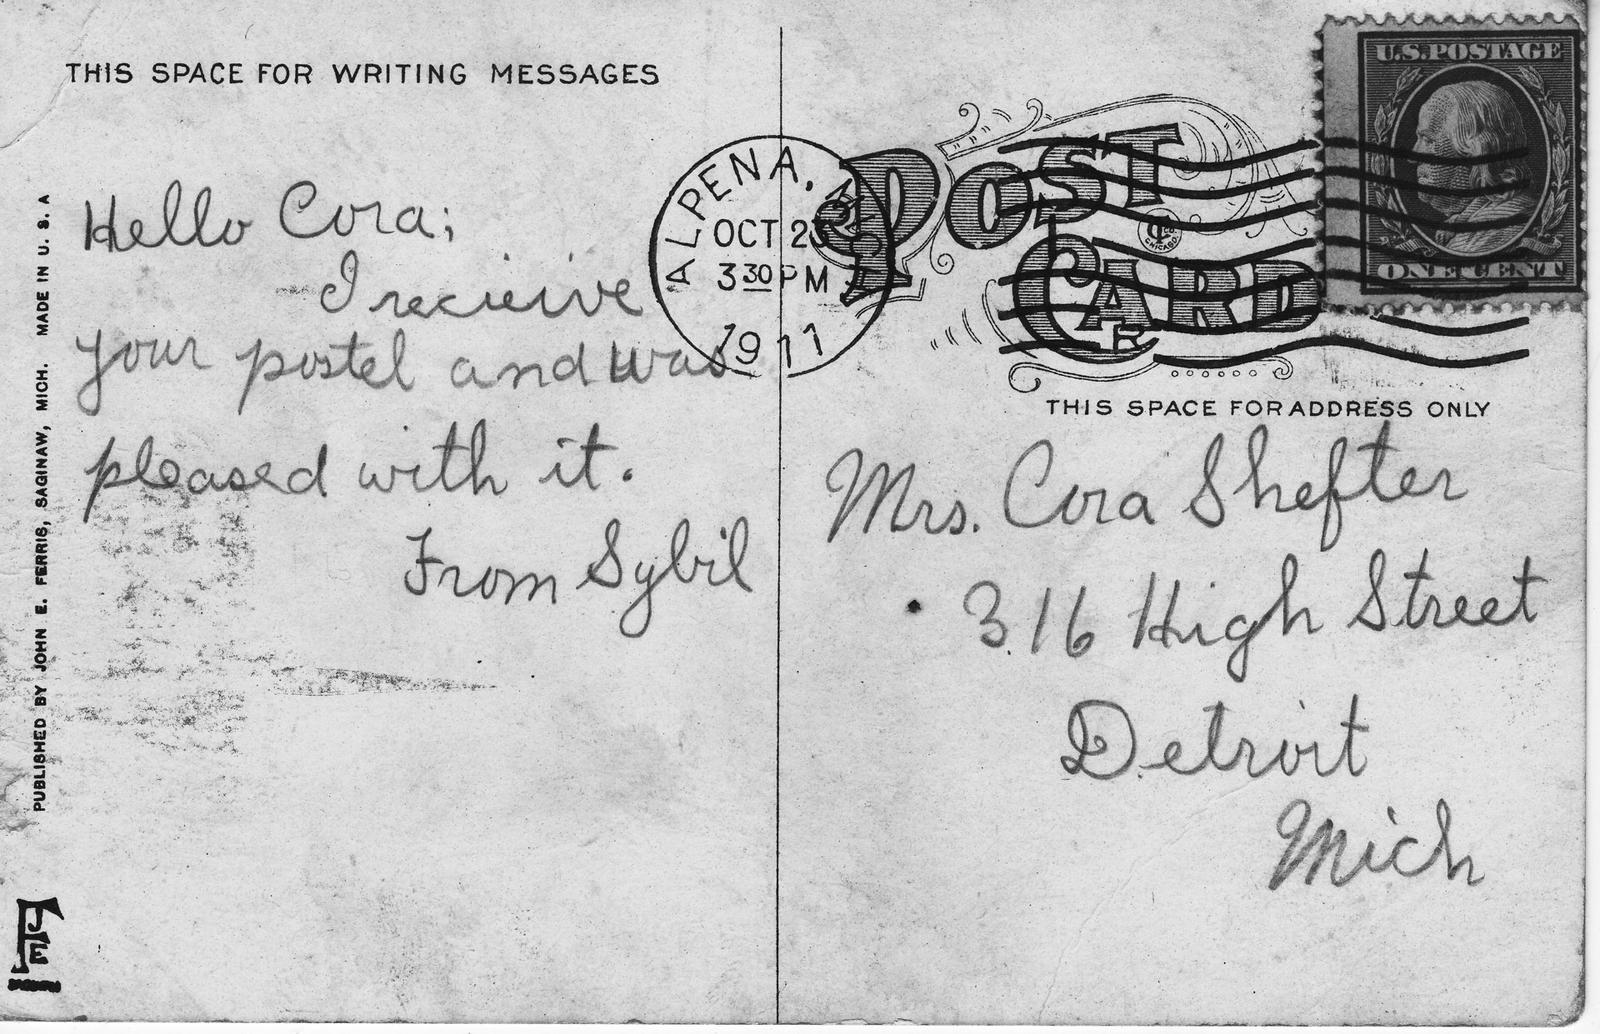 THIS SPACE FOR WRITING MESSAGES
Hello Cora;
I recieive
your postel and was
pleased with it.
From Sybil
PUBLISHED BY JOHN E. FERRIS, SAGINAW, MICH. MADE IN U. S. A
ALPENA, MICH
OCT
3 30 PM
1911
POST
CARD
CHICAGO
U.S. POSTAGE
ONE CENT
THIS SPACE FOR ADDRESS ONLY
Mrs. Cora Shefter
316 High Street
Detroit
Mich